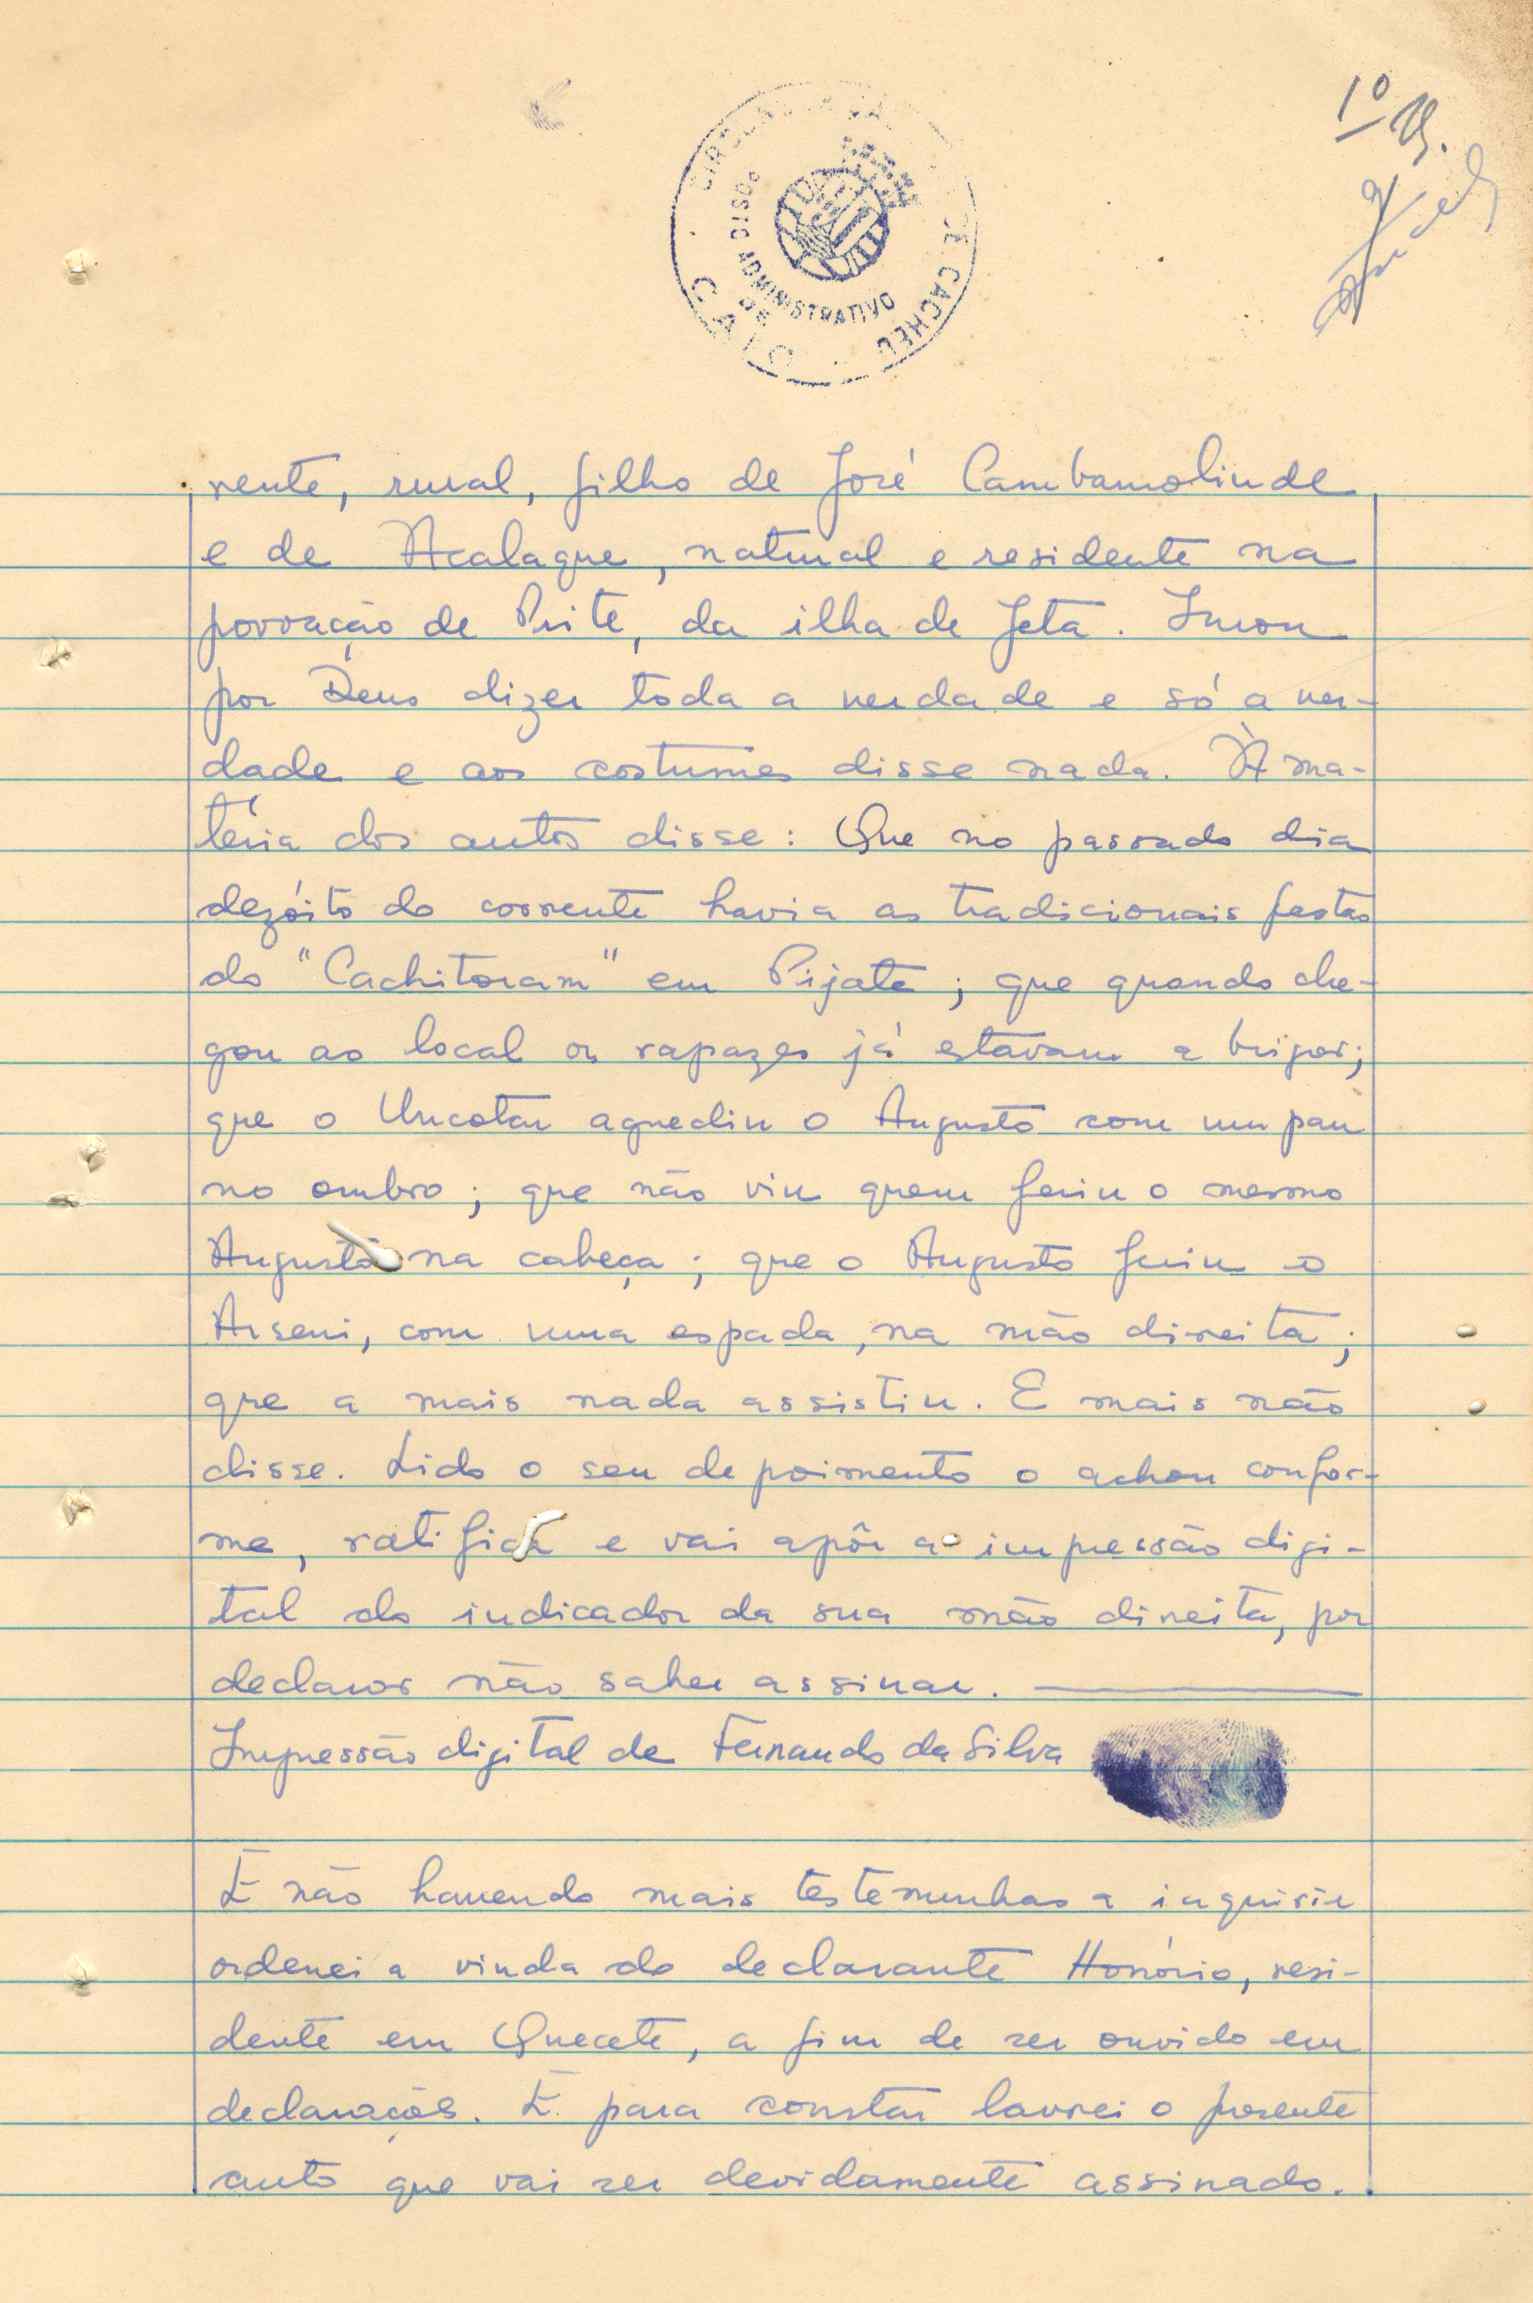 1º
CIRCUNS
DE CACHEU
POSTO ADMINISTRATIVO
DE
CAIO
rente, rural, filho de José Cambamolinde
e de Acalaque, natural e residente na
povoação de Prite, da ilha de Jeta. Jurou
por Deus dizer toda a verdade e só a ver-
dade e aos costumes disse nada. À ma-
téria dos autos disse: Que no passado dia
dezóito do corrente havia as tradicionais festas
do "Cachitoram" em Pijate; que quando che-
gou ao local os rapazes já estavam a brigar;
que o Uncotar agrediu o Augusto com um pau
no ombro; que não viu quem feriu o mesmo
Augusto na cabeça; que o Augusto feriu o
Arseni, com uma espada, na mão direita;
que a mais nada assistiu. E mais não
disse. Lido o seu depoimento o achou confor-
me, ratifica e vai apôr a impressão digi-
tal do indicador da sua mão direita, por
declarar não saber assinar.
Impressão digital de Fernando da Silva
E não havendo mais testemunhas a inquirir
ordenei a vinda do declarante Honório, resi-
dente em Quecete, a fim de ser ouvido em
declarações. E para constar lavrei o presente
auto que vai ser devidamente assinado.